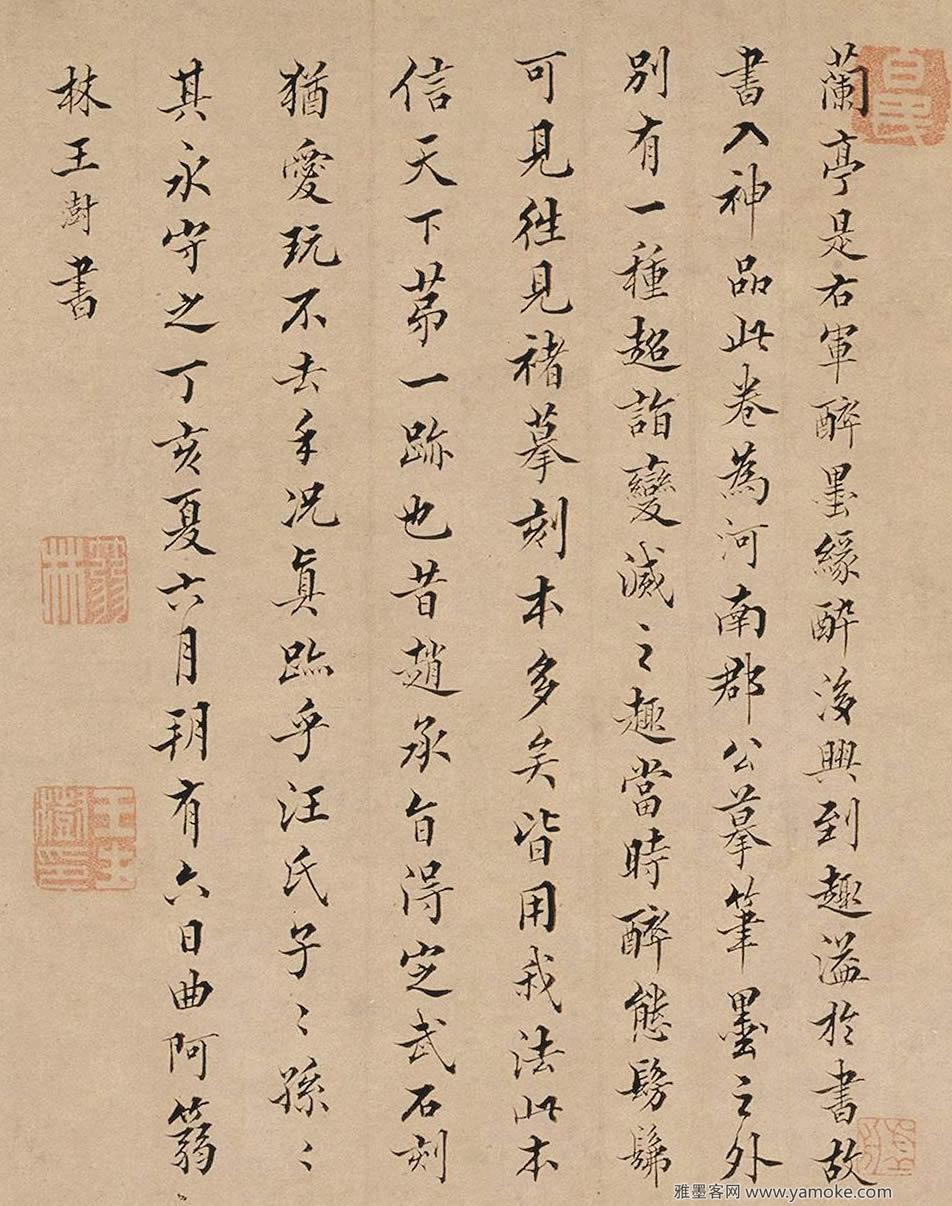 蘭亭是右軍醉墨緣醉後興到趣溢於書故
書入神品此卷為河南郡公摹筆墨之外
別有一種超詣變滅之趣當時醉態髣髴
可見徃見褚摹刻本多矣皆用我法此本
信天下苐一跡也昔趙承旨得定武石刻
猶愛玩不去手况真跡乎汪氏子〻孫〻
其永守之丁亥夏六月朔有六日曲阿篛
林王澍書
雅墨客网 www.yamoke.com